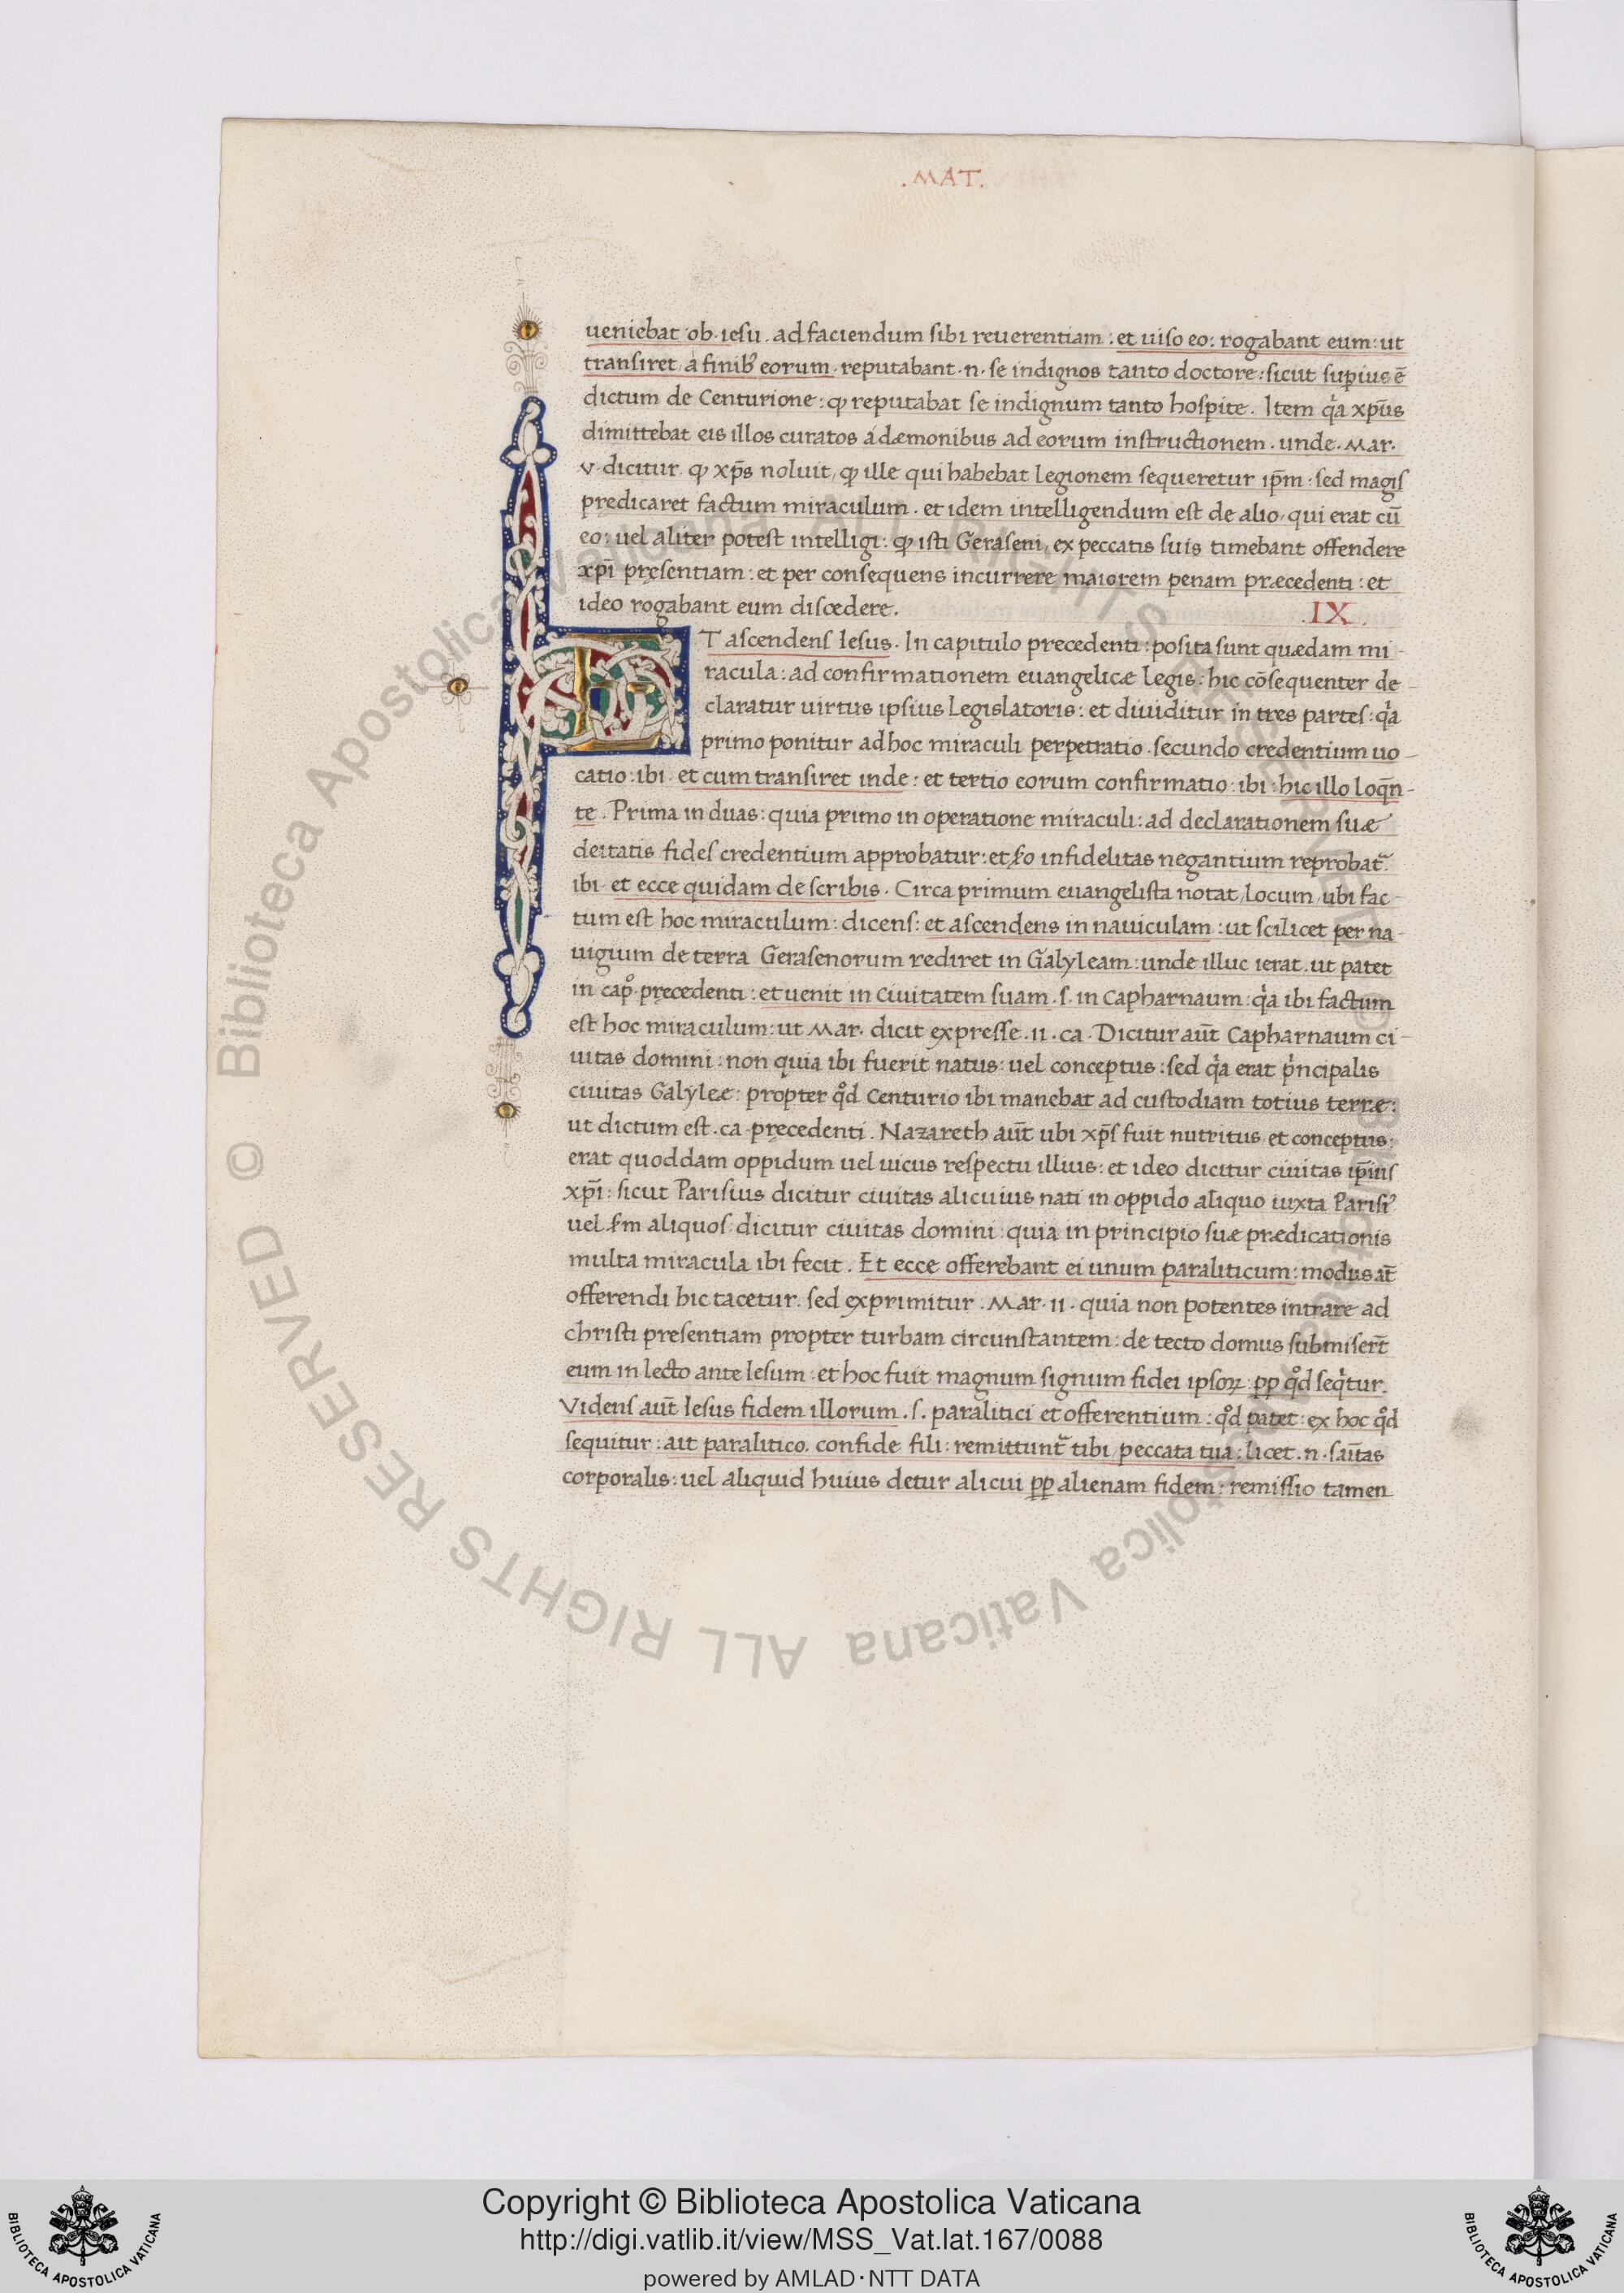 .MAT.
ueniebat ob. iesu. ad faciendum sibi reuerentiam : et uiso eo : rogabant eum : ut
transiret a finib' eorum . reputabant .n. se indignos tanto doctore : sicut supius ē
dictum de Centurione : ꝙ reputabat se indignum tanto hospite . Item qa xpūs
dimittebat eis illos curatos a dæmonibus ad eorum instructionem . unde . Mar.
v. dicitur ꝙ xps̄ noluit, ꝙ ille qui habebat legionem sequeretur ip̄m : sed magis
predicaret factum miraculum . et idem intelligendum est de alio, qui erat cū
eo : uel aliter potest intelligi : ꝙ isti Geraseni, ex peccatis suis timebant offendere
xpī pręsentiam : et per consequens incurrere maiorem penam præcedenti : et
ideo rogabant eum discedere .
.IX.
ET ascendens Iesus . In capitulo precedenti : posita sunt quædam mi-
racula : ad confirmationem euangelicæ Legis : hic cōsequenter de-
claratur uirtus ipsius Legislatoris : et diuiditur in tres partes : qa
primo ponitur ad hoc miraculi perpetratio . secundo credentium uo-
catio : ibi . et cum transiret inde : et tertio eorum confirmatio : ibi : hic illo loqn̄-
te . Prima in duas : quia primo in operatione miraculi : ad declarationem suæ
deitatis fides credentium approbatur : et ſo infidelitas negantium reprobat̄.
ibi . et ecce quidam de scribis . Circa primum euangelista notat, locum, ubi fac-
tum est hoc miraculum : dicens : et ascendens in nauiculam : ut scilicet per na-
uigium de terra Gerasenorum rediret in Galyleam : unde illuc ierat . ut patet
in cap̊. pręcedenti : et uenit in ciuitatem suam . s. in Capharnaum : qa ibi factum
est hoc miraculum : ut Mar. dicit expresse . II . ca . Dicitur aūt Capharnaum ci-
uitas domini : non quia ibi fuerit natus : uel conceptus : sed qa erat pncipalis
ciuitas Galyleæ : propter qd Centurio ibi manebat ad custodiam totius terræ :
ut dictum est . ca pręcedenti . Nazareth aūt ubi xps̄ fuit nutritus et conceptus :
erat quoddam oppidum uel uicus respectu illius : et ideo dicitur ciuitas ip̄ius
xpī : sicut Parisius dicitur ciuitas alicuius nati in oppido aliquo iuxta Paris'
uel ſm aliquos : dicitur ciuitas domini : quia in principio suæ prædicationis
multa miracula ibi fecit . Et ecce offerebant ei unum paraliticum : modus at̄
offerendi hic tacetur . sed exprimitur . Mar. II . quia non potentes intrare ad
christi presentiam propter turbam circunstantem : de tecto domus submisert̄
eum in lecto ante Iesum : et hoc fuit magnum signum fidei ipsoꝝ : pp qd seqtur.
Videns aūt Iesus fidem illorum . s. paralitici et offerentium : qd patet : ex hoc qd
sequitur : ait paralitico . confide fili : remittunt̄ tibi peccata tua : licet .n. sāitas
corporalis : uel aliquid huius detur alicui pp alienam fidem : remissio tamen
© Biblioteca Apostolica Vaticana ALL RIGHTS RESERVED
Copyright © Biblioteca Apostolica Vaticana
http://digi.vatlib.it/view/MSS_Vat.lat.167/0088
powered by AMLAD·NTT DATA
BIBLIOTECA APOSTOLICA VATICANA
BIBLIOTECA APOSTOLICA VATICANA